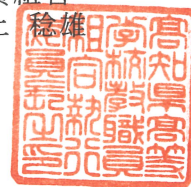 稔雄
高知県高等
学校教職員
組合執行
委員長之印